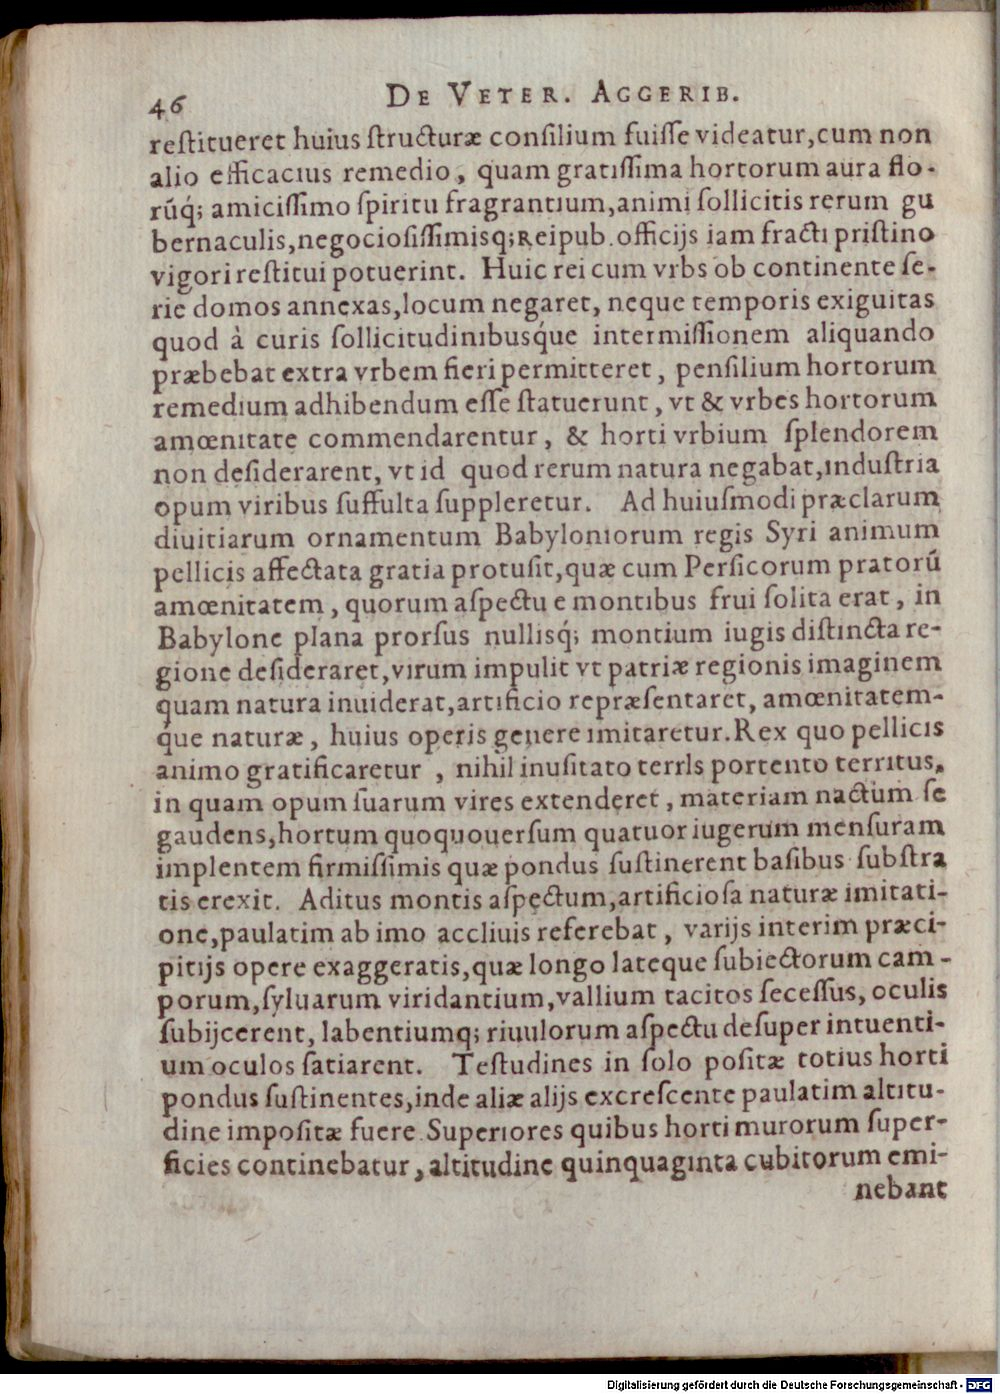 46 DE VETER. AGGERIB.
reſtitueret huius ſtructuræ conſilium fuiſſe videatur,cum non
alio efficacius remedio, quam gratiſſima hortorum aura flo-
rūq́; amiciſſimo ſpiritu fragrantium,animi ſollicitis rerum gu
bernaculis,negocioſiſſimisq;Reipub.officijs iam fracti priſtino
vigori reſtitui potuerint. Huic rei cum vrbs ob continente ſe-
rie domos annexas,locum negaret, neque temporis exiguitas
quod à curis ſollicitudinibusq́ue intermiſſionem aliquando
præbebat extra vrbem fieri permitteret, penſilium hortorum
remedium adhibendum eſſe ſtatuerunt, vt & vrbes hortorum
amœnitate commendarentur, & horti vrbium ſplendorem
non deſiderarent, vt id quod rerum natura negabat,induſtria
opum viribus ſuffulta ſuppleretur. Ad huiuſmodi præclarum
diuitiarum ornamentum Babyloniorum regis Syri animum
pellicis affectata gratia protuſit,quæ cum Perſicorum pratorū
amœnitatem, quorum aſpectu e montibus frui ſolita erat, in
Babylone plana prorſus nullisq́; montium iugis diſtincta re-
gione deſideraret,virum impulit vt patriæ regionis imaginem
quam natura inuiderat,artificio repræſentaret, amœnitatem-
q́ue naturæ, huius operis genere imitaretur.Rex quo pellicis
animo gratificaretur, nihil inuſitato terrls portento territus,
in quam opum ſuarum vires extenderet, materiam nactum ſe
gaudens,hortum quoquouerſum quatuor iugerum menſuram
implentem firmiſſimis quæ pondus ſuſtinerent baſibus ſubſtra
tis erexit. Aditus montis aſpectum,artificioſa naturæ imitati-
one,paulatim ab imo accliuis referebat, varijs interim præci-
pitijs opere exaggeratis,quæ longo lateque ſubiectorum cam-
porum,ſyluarum viridantium,vallium tacitos ſeceſſus, oculis
ſubijcerent, labentiumq; riuulorum aſpectu deſuper intuenti-
um oculos ſatiarent. Teſtudines in ſolo poſitæ totius horti
pondus ſuſtinentes,inde aliæ alijs excreſcente paulatim altitu-
dine impoſitæ fuere.Superiores quibus horti murorum ſuper-
ficies continebatur, altitudine quinquaginta cubitorum emi-
nebant
Digitalisierung gefördert durch die Deutsche Forschungsgemeinschaft - DFG